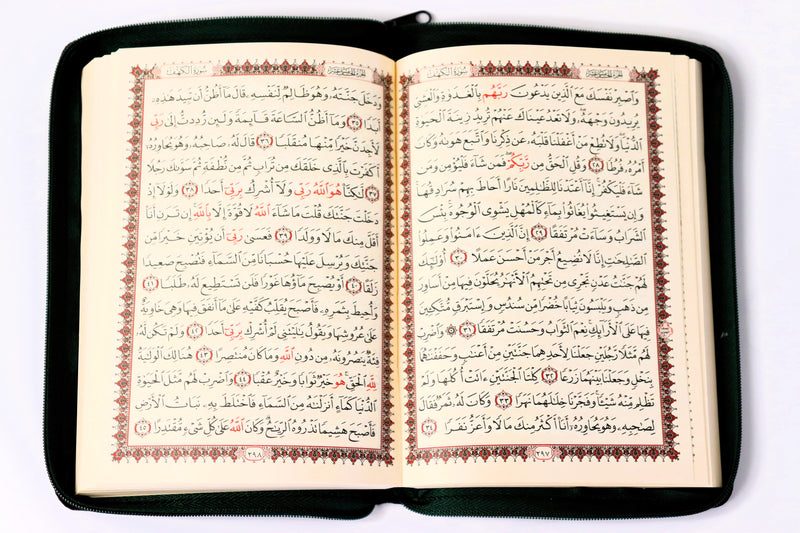 الجزء الخامس عشر سورة الكهف
وَٱصْبِرْ نَفْسَكَ مَعَ ٱلَّذِينَ يَدْعُونَ رَبَّهُم بِٱلْغَدَوٰةِ وَٱلْعَشِىِّ
يُرِيدُونَ وَجْهَهُۥ وَلَا تَعْدُ عَيْنَاكَ عَنْهُمْ تُرِيدُ زِينَةَ ٱلْحَيَوٰةِ
ٱلدُّنْيَا وَلَا تُطِعْ مَنْ أَغْفَلْنَا قَلْبَهُۥ عَن ذِكْرِنَا وَٱتَّبَعَ هَوَىٰهُ وَكَانَ
أَمْرُهُۥ فُرُطًا ٢٨ وَقُلِ ٱلْحَقُّ مِن رَّبِّكُمْ فَمَن شَآءَ فَلْيُؤْمِن وَمَن
شَآءَ فَلْيَكْفُرْ إِنَّآ أَعْتَدْنَا لِلظَّٰلِمِينَ نَارًا أَحَاطَ بِهِمْ سُرَادِقُهَا
وَإِن يَسْتَغِيثُوا۟ يُغَاثُوا۟ بِمَآءٍ كَٱلْمُهْلِ يَشْوِى ٱلْوُجُوهَ بِئْسَ
ٱلشَّرَابُ وَسَآءَتْ مُرْتَفَقًا ٢٩ إِنَّ ٱلَّذِينَ ءَامَنُوا۟ وَعَمِلُوا۟
ٱلصَّٰلِحَٰتِ إِنَّا لَا نُضِيعُ أَجْرَ مَنْ أَحْسَنَ عَمَلًا ٣٠ أُو۟لَٰٓئِكَ
لَهُمْ جَنَّٰتُ عَدْنٍ تَجْرِى مِن تَحْتِهِمُ ٱلْأَنْهَٰرُ يُحَلَّوْنَ فِيهَا مِنْ أَسَاوِرَ
مِن ذَهَبٍ وَيَلْبَسُونَ ثِيَابًا خُضْرًا مِّن سُندُسٍ وَإِسْتَبْرَقٍ مُّتَّكِـِٔينَ
فِيهَا عَلَى ٱلْأَرَآئِكِ نِعْمَ ٱلثَّوَابُ وَحَسُنَتْ مُرْتَفَقًا ٣١ ۞ وَٱضْرِبْ
لَهُم مَّثَلًا رَّجُلَيْنِ جَعَلْنَا لِأَحَدِهِمَا جَنَّتَيْنِ مِنْ أَعْنَٰبٍ وَحَفَفْنَٰهُمَا
بِنَخْلٍ وَجَعَلْنَا بَيْنَهُمَا زَرْعًا ٣٢ كِلْتَا ٱلْجَنَّتَيْنِ ءَاتَتْ أُكُلَهَا وَلَمْ
تَظْلِم مِّنْهُ شَيْـًٔا وَفَجَّرْنَا خِلَٰلَهُمَا نَهَرًا ٣٣ وَكَانَ لَهُۥ ثَمَرٌ فَقَالَ
لِصَٰحِبِهِۦ وَهُوَ يُحَاوِرُهُۥٓ أَنَا۠ أَكْثَرُ مِنكَ مَالًا وَأَعَزُّ نَفَرًا ٣٤
٢٩٧
الجزء الخامس عشر سورة الكهف
وَدَخَلَ جَنَّتَهُۥ وَهُوَ ظَالِمٌ لِّنَفْسِهِۦ قَالَ مَآ أَظُنُّ أَن تَبِيدَ هَٰذِهِۦٓ
أَبَدًا ٣٥ وَمَآ أَظُنُّ ٱلسَّاعَةَ قَآئِمَةً وَلَئِن رُّدِدتُّ إِلَىٰ رَبِّى
لَأَجِدَنَّ خَيْرًا مِّنْهَا مُنقَلَبًا ٣٦ قَالَ لَهُۥ صَاحِبُهُۥ وَهُوَ يُحَاوِرُهُۥٓ
أَكَفَرْتَ بِٱلَّذِى خَلَقَكَ مِن تُرَابٍ ثُمَّ مِن نُّطْفَةٍ ثُمَّ سَوَّىٰكَ رَجُلًا
٣٧ لَّٰكِنَّا۠ هُوَ ٱللَّهُ رَبِّى وَلَآ أُشْرِكُ بِرَبِّىٓ أَحَدًا ٣٨ وَلَوْلَآ إِذْ
دَخَلْتَ جَنَّتَكَ قُلْتَ مَا شَآءَ ٱللَّهُ لَا قُوَّةَ إِلَّا بِٱللَّهِ إِن تَرَنِ أَنَا۠
أَقَلَّ مِنكَ مَالًا وَوَلَدًا ٣٩ فَعَسَىٰ رَبِّىٓ أَن يُؤْتِيَنِ خَيْرًا مِّن
جَنَّتِكَ وَيُرْسِلَ عَلَيْهَا حُسْبَانًا مِّنَ ٱلسَّمَآءِ فَتُصْبِحَ صَعِيدًا
زَلَقًا ٤٠ أَوْ يُصْبِحَ مَآؤُهَا غَوْرًا فَلَن تَسْتَطِيعَ لَهُۥ طَلَبًا ٤١
وَأُحِيطَ بِثَمَرِهِۦ فَأَصْبَحَ يُقَلِّبُ كَفَّيْهِ عَلَىٰ مَآ أَنفَقَ فِيهَا وَهِىَ خَاوِيَةٌ
عَلَىٰ عُرُوشِهَا وَيَقُولُ يَٰلَيْتَنِى لَمْ أُشْرِكْ بِرَبِّىٓ أَحَدًا ٤٢ وَلَمْ تَكُن لَّهُۥ
فِئَةٌ يَنصُرُونَهُۥ مِن دُونِ ٱللَّهِ وَمَا كَانَ مُنتَصِرًا ٤٣ هُنَالِكَ ٱلْوَلَٰيَةُ
لِلَّهِ ٱلْحَقِّ هُوَ خَيْرٌ ثَوَابًا وَخَيْرٌ عُقْبًا ٤٤ وَٱضْرِبْ لَهُم مَّثَلَ ٱلْحَيَوٰةِ
ٱلدُّنْيَا كَمَآءٍ أَنزَلْنَٰهُ مِنَ ٱلسَّمَآءِ فَٱخْتَلَطَ بِهِۦ نَبَاتُ ٱلْأَرْضِ
فَأَصْبَحَ هَشِيمًا تَذْرُوهُ ٱلرِّيَٰحُ وَكَانَ ٱللَّهُ عَلَىٰ كُلِّ شَىْءٍ مُّقْتَدِرًا ٤٥
٢٩٨